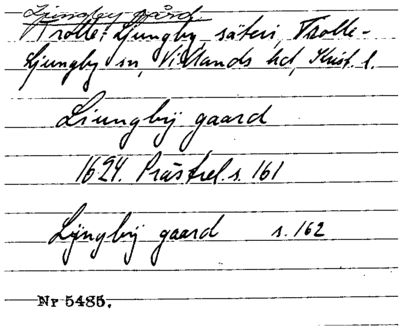 Ljungby gård.
Trolle-Ljungby säteri, Trolle-
Ljungby sn, Villands hd, Krist. l.
Liungbÿ gaard
1624. Prästrel. s. 161
Lÿngbÿ gaard s. 162
Nr 5485.